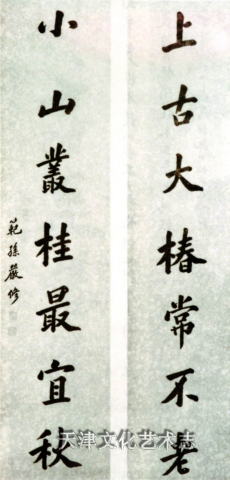 上古大椿常不老
小山叢桂最宜秋
範孫嚴修
天津文化艺术志